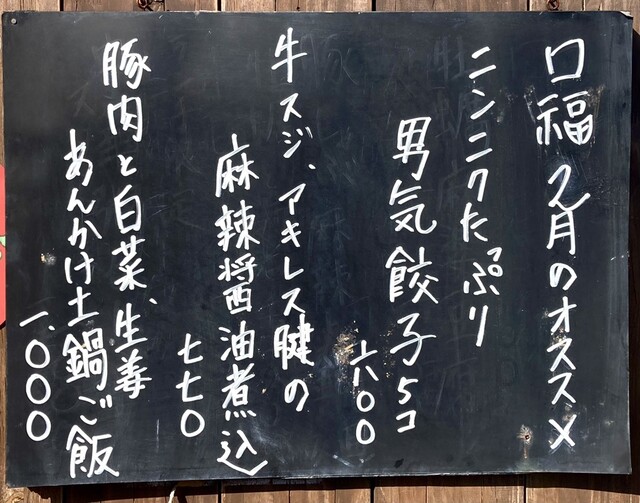 口福 2月のオススメ
ニンニクたっぷり
男気餃子5コ
六〇〇
牛スジ、アキレス腱の
麻辣醤油煮込
七七〇
豚肉と白菜、生姜
あんかけ土鍋ご飯
一、〇〇〇